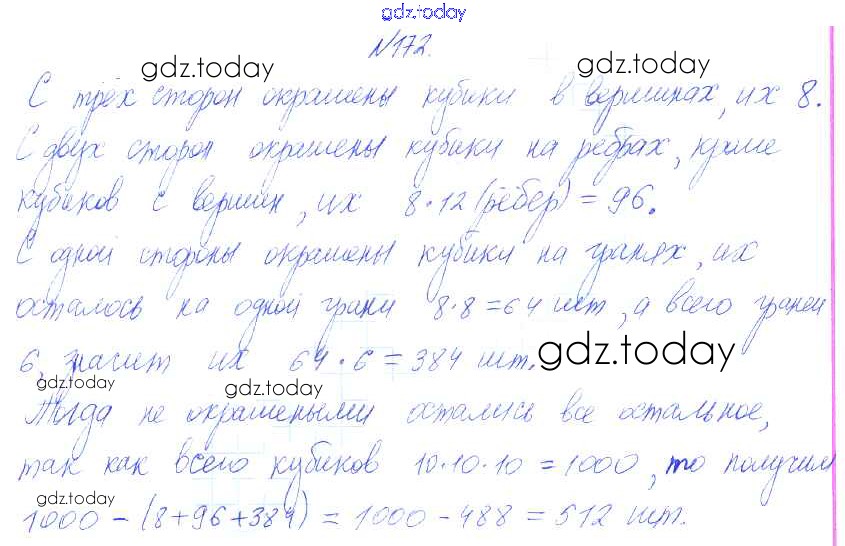 gdz.today
№172.
gdz.today
С трёх сторон окрашены кубики в вершинах, их 8.
С двух сторон окрашены кубики на рёбрах, кроме
кубиков с вершин, их 8·12 (рёбер) = 96.
С одной стороны окрашены кубики на гранях, их
осталось на одной грани 8·8=64 шт, а всего граней
6, значит их 64·6=384 шт.
gdz.today
gdz.today
gdz.today
Тогда не окрашеными остались все остальное,
так как всего кубиков 10·10·10=1000, то получим
gdz.today
1000-(8+96+384)=1000-488=512 шт.